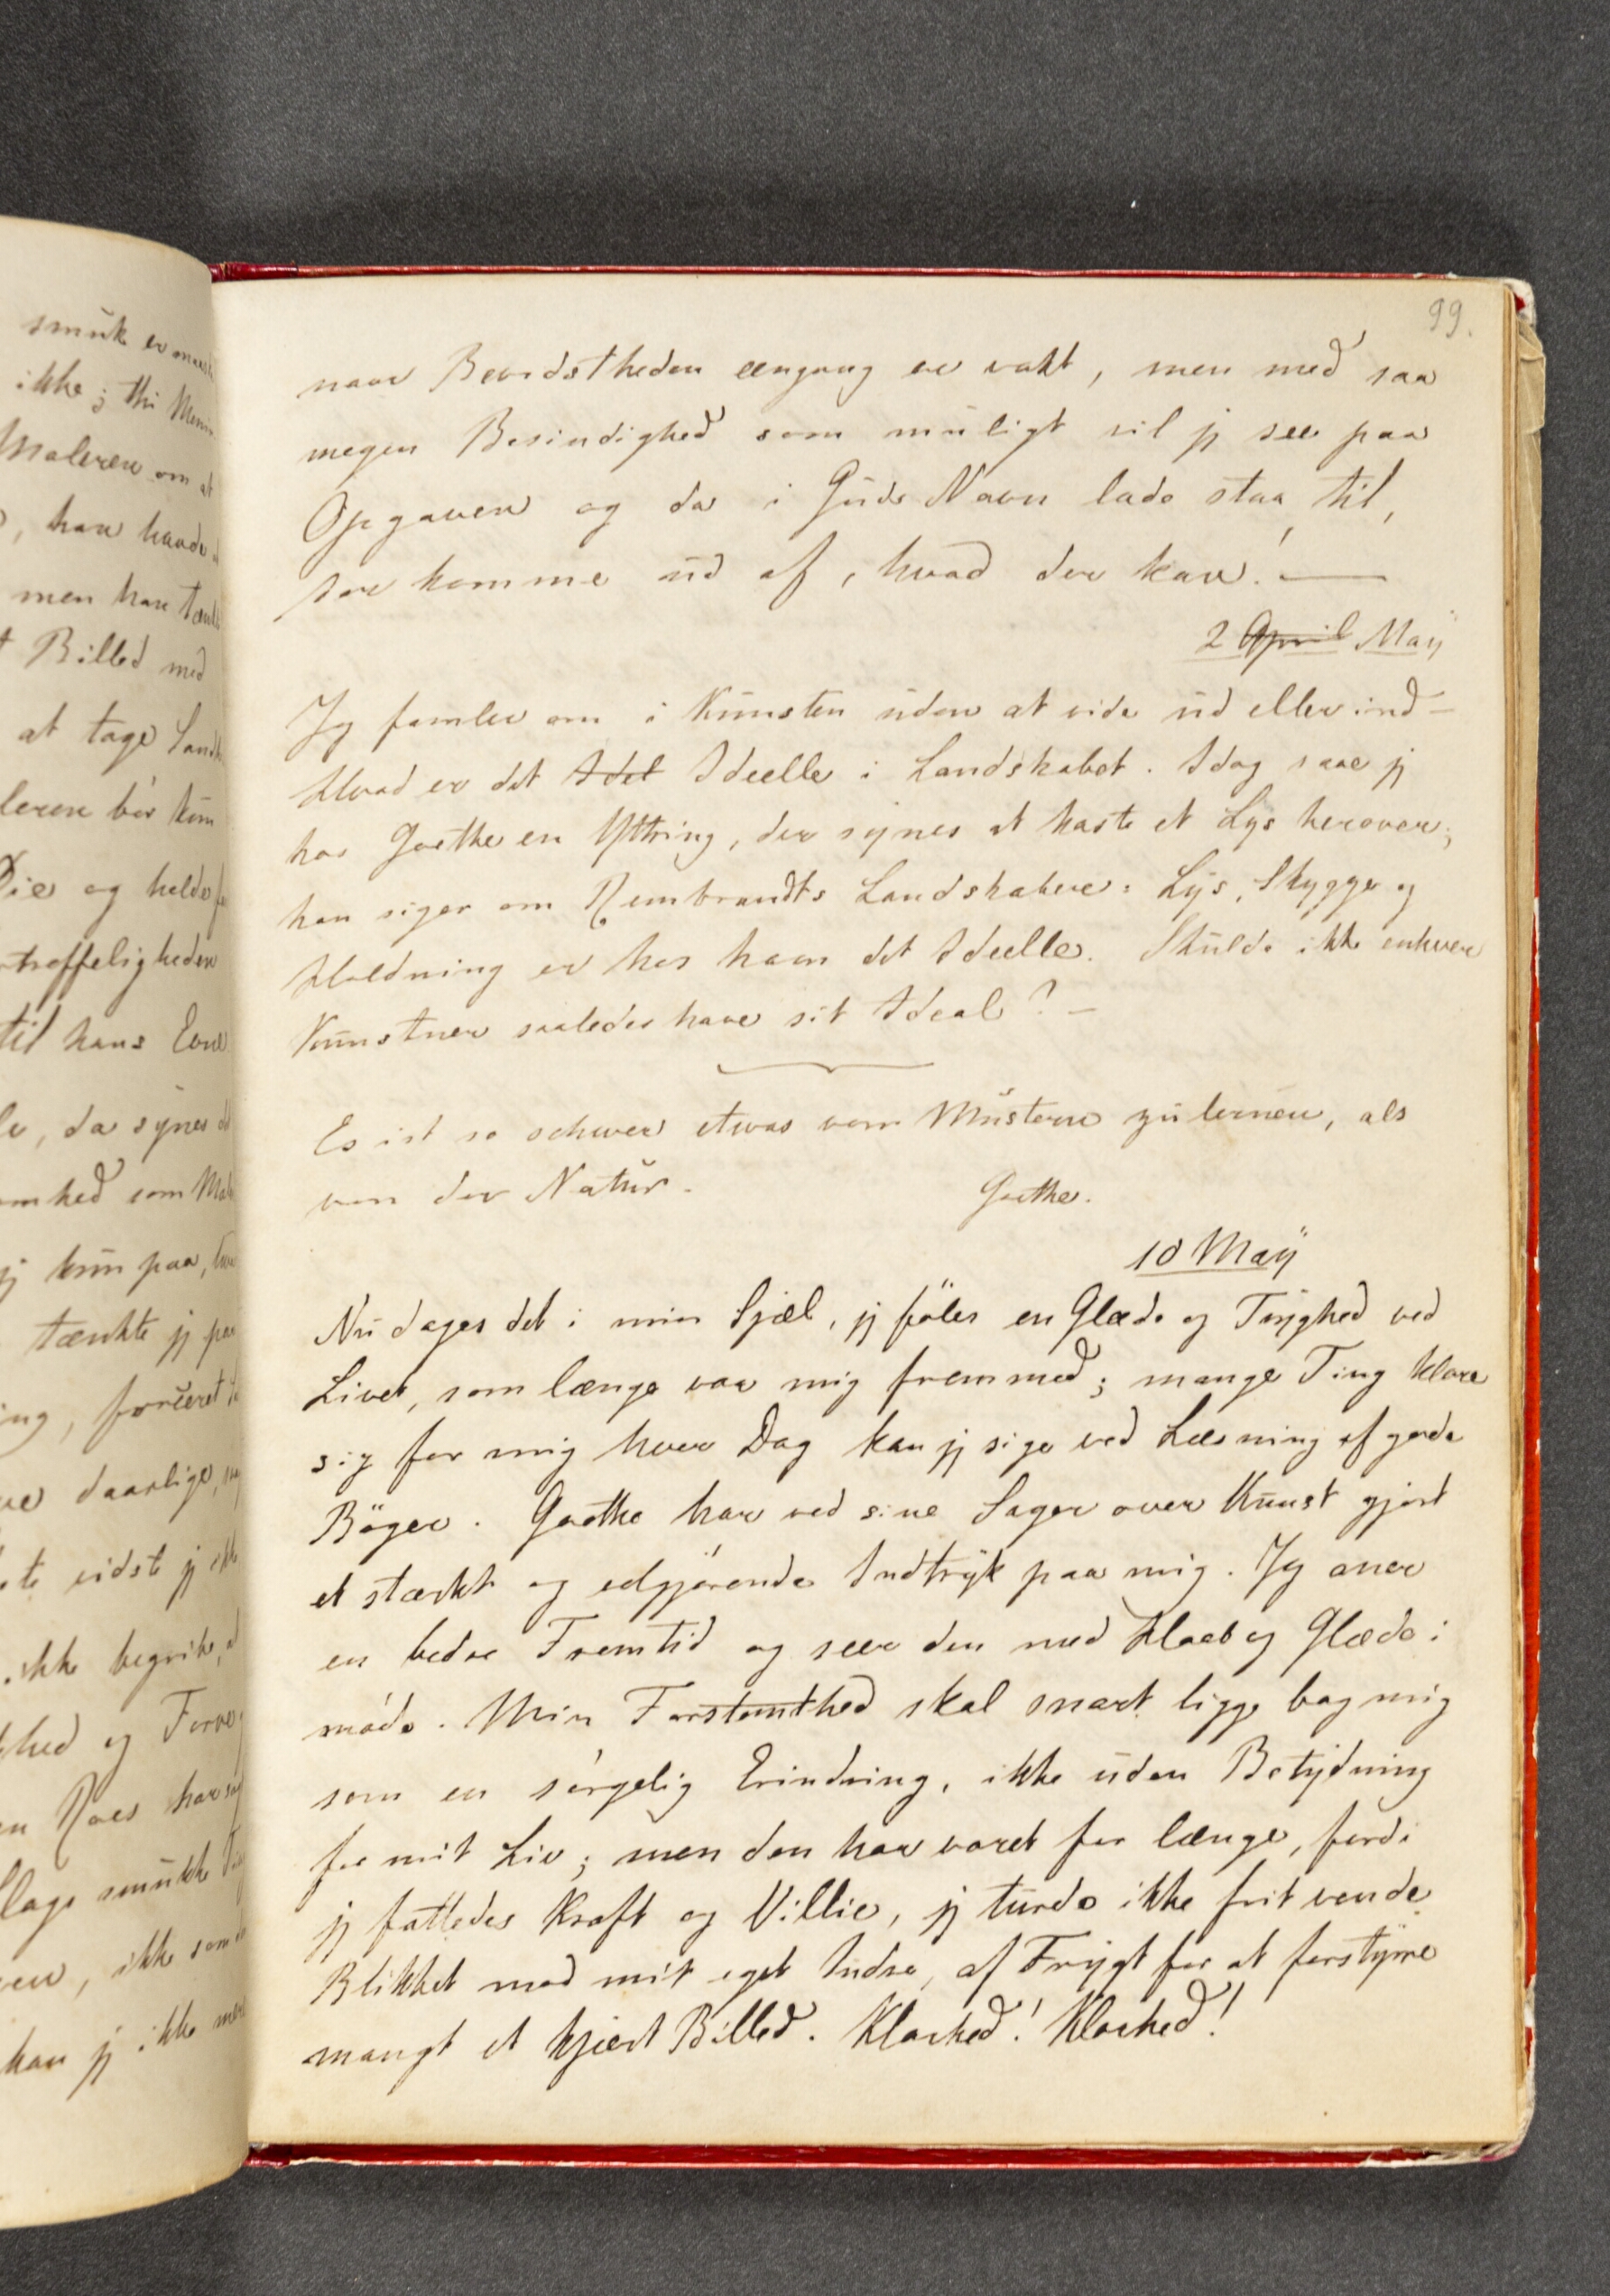 smuk er
ikke; thi
Maleren om at
, han havde
men han
Billed med
at tage
bör kun
og holde
til hans
, da synes
som
jeg kun paa,
tænkte jeg
daarlige,
vidst jeg
ikke
og
har
smukke
, ikke som
kan jeg ikke
99.
naar Bevidstheden eengang er vakt, men med saa
megen Besindighed som muligt vil jeg see paa
Opgaven og da i Guds Navn lade staa til,
komme ud af, hvad der kan! —
2 April May
Jeg famler om i Kunsten uden at vide ud eller ind —
Hvad er det Idel Ideelle i Landskabet. Idag saae jeg
hos Goethe en Yttring, der synes at kaste et Lys herover;
han siger om Rembrandts Landskaber: Lys, Skygge og
Holdning er hos ham det Ideelle. Skulde ikke enhver
Kunstner saaledes have sit Ideal? —
Es ist so schwer etwas vom Mustern zu lernen, als
von der Natur. Goethe.
10 May
Nu dages det i min Sjæl, jeg föler en Glæde og Tryghed ved
Livet, som længe var mig fremmed; mange Ting klare
sig for mig hver Dag kan jeg sige ved Læsning af gode
Böger. Goethe har ved sine Sager over Kunst gjort
et stærkt og velgjörende Indtryk paa mig. Jeg aner
en bedre Fremtid og seer den med Haab og Glæde i
möde. Min Forstemthed skal snart ligge bag mig
som en sörgelig Erindring, ikke uden Betydning
for mit Liv; men den har varet for længe, fordi
jeg fattedes Kraft og Villie, jeg turde ikke frit vende
Blikket mod mit eget Indre, af Frygt for at forstyrre
mangt et kjært Billed. Klarhed! Klarhed!